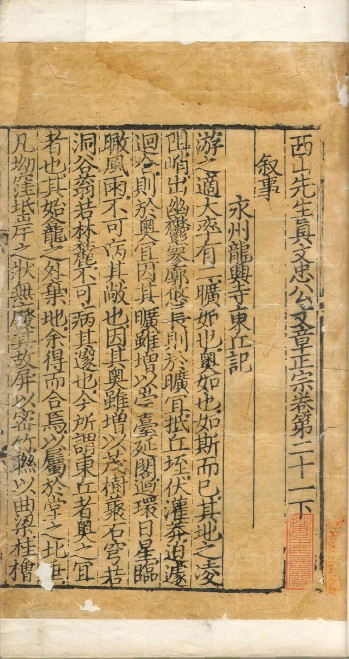 西山先生真文忠公文章正宗卷第二十一下
叙事
永州龍興寺東丘記
游之適大率有二曠如也奥如也如斯而已其地之凌
阻峭出幽鬱寥廓悠長則於曠宜抵丘垤伏灌莽迫遽
迴合則於奥宜因其曠雖增以崇臺延閣迴環日星臨
瞰風雨不可病其敞也因其奥雖增以茂樹藂石穹若
洞谷蓊若林麓不可病其邃也今所謂東丘者奥之宜
者也其始龕之外棄地余得而合焉以屬於堂之北垂
凡坳窪坻岸之狀無廢其故屏以密竹聯以曲梁桂檜